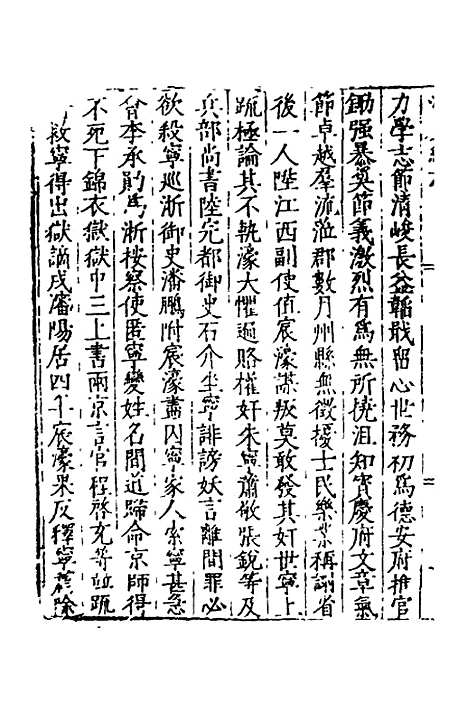 力學志節清峻長益韜戢留心世務初爲德安府推官
鋤强暴奬節義激烈有爲無所撓沮知寳慶府文章氣
節卓越羣流涖郡數月州縣無徵擾士民樂業稱謝省
後一人陞江西副使值宸濠謀叛莫敢發其奸世寧上
疏極論其不執濠大懼遍賂權奸朱寧蕭敬張銳等及
兵部尚書陸完都御史石介坐寧誹謗妖言離間罪必
欲殺寧巡浙御史潘鵬附宸濠盡囚寧家人索寧甚急
會李承勛爲浙按察使匿寧變姓名間道歸命京師得
不死下錦衣獄獄中三上書兩京言官程啓充等並疏
救寧得出獄謫戍瀋陽居四年宸濠果反釋寧戍除